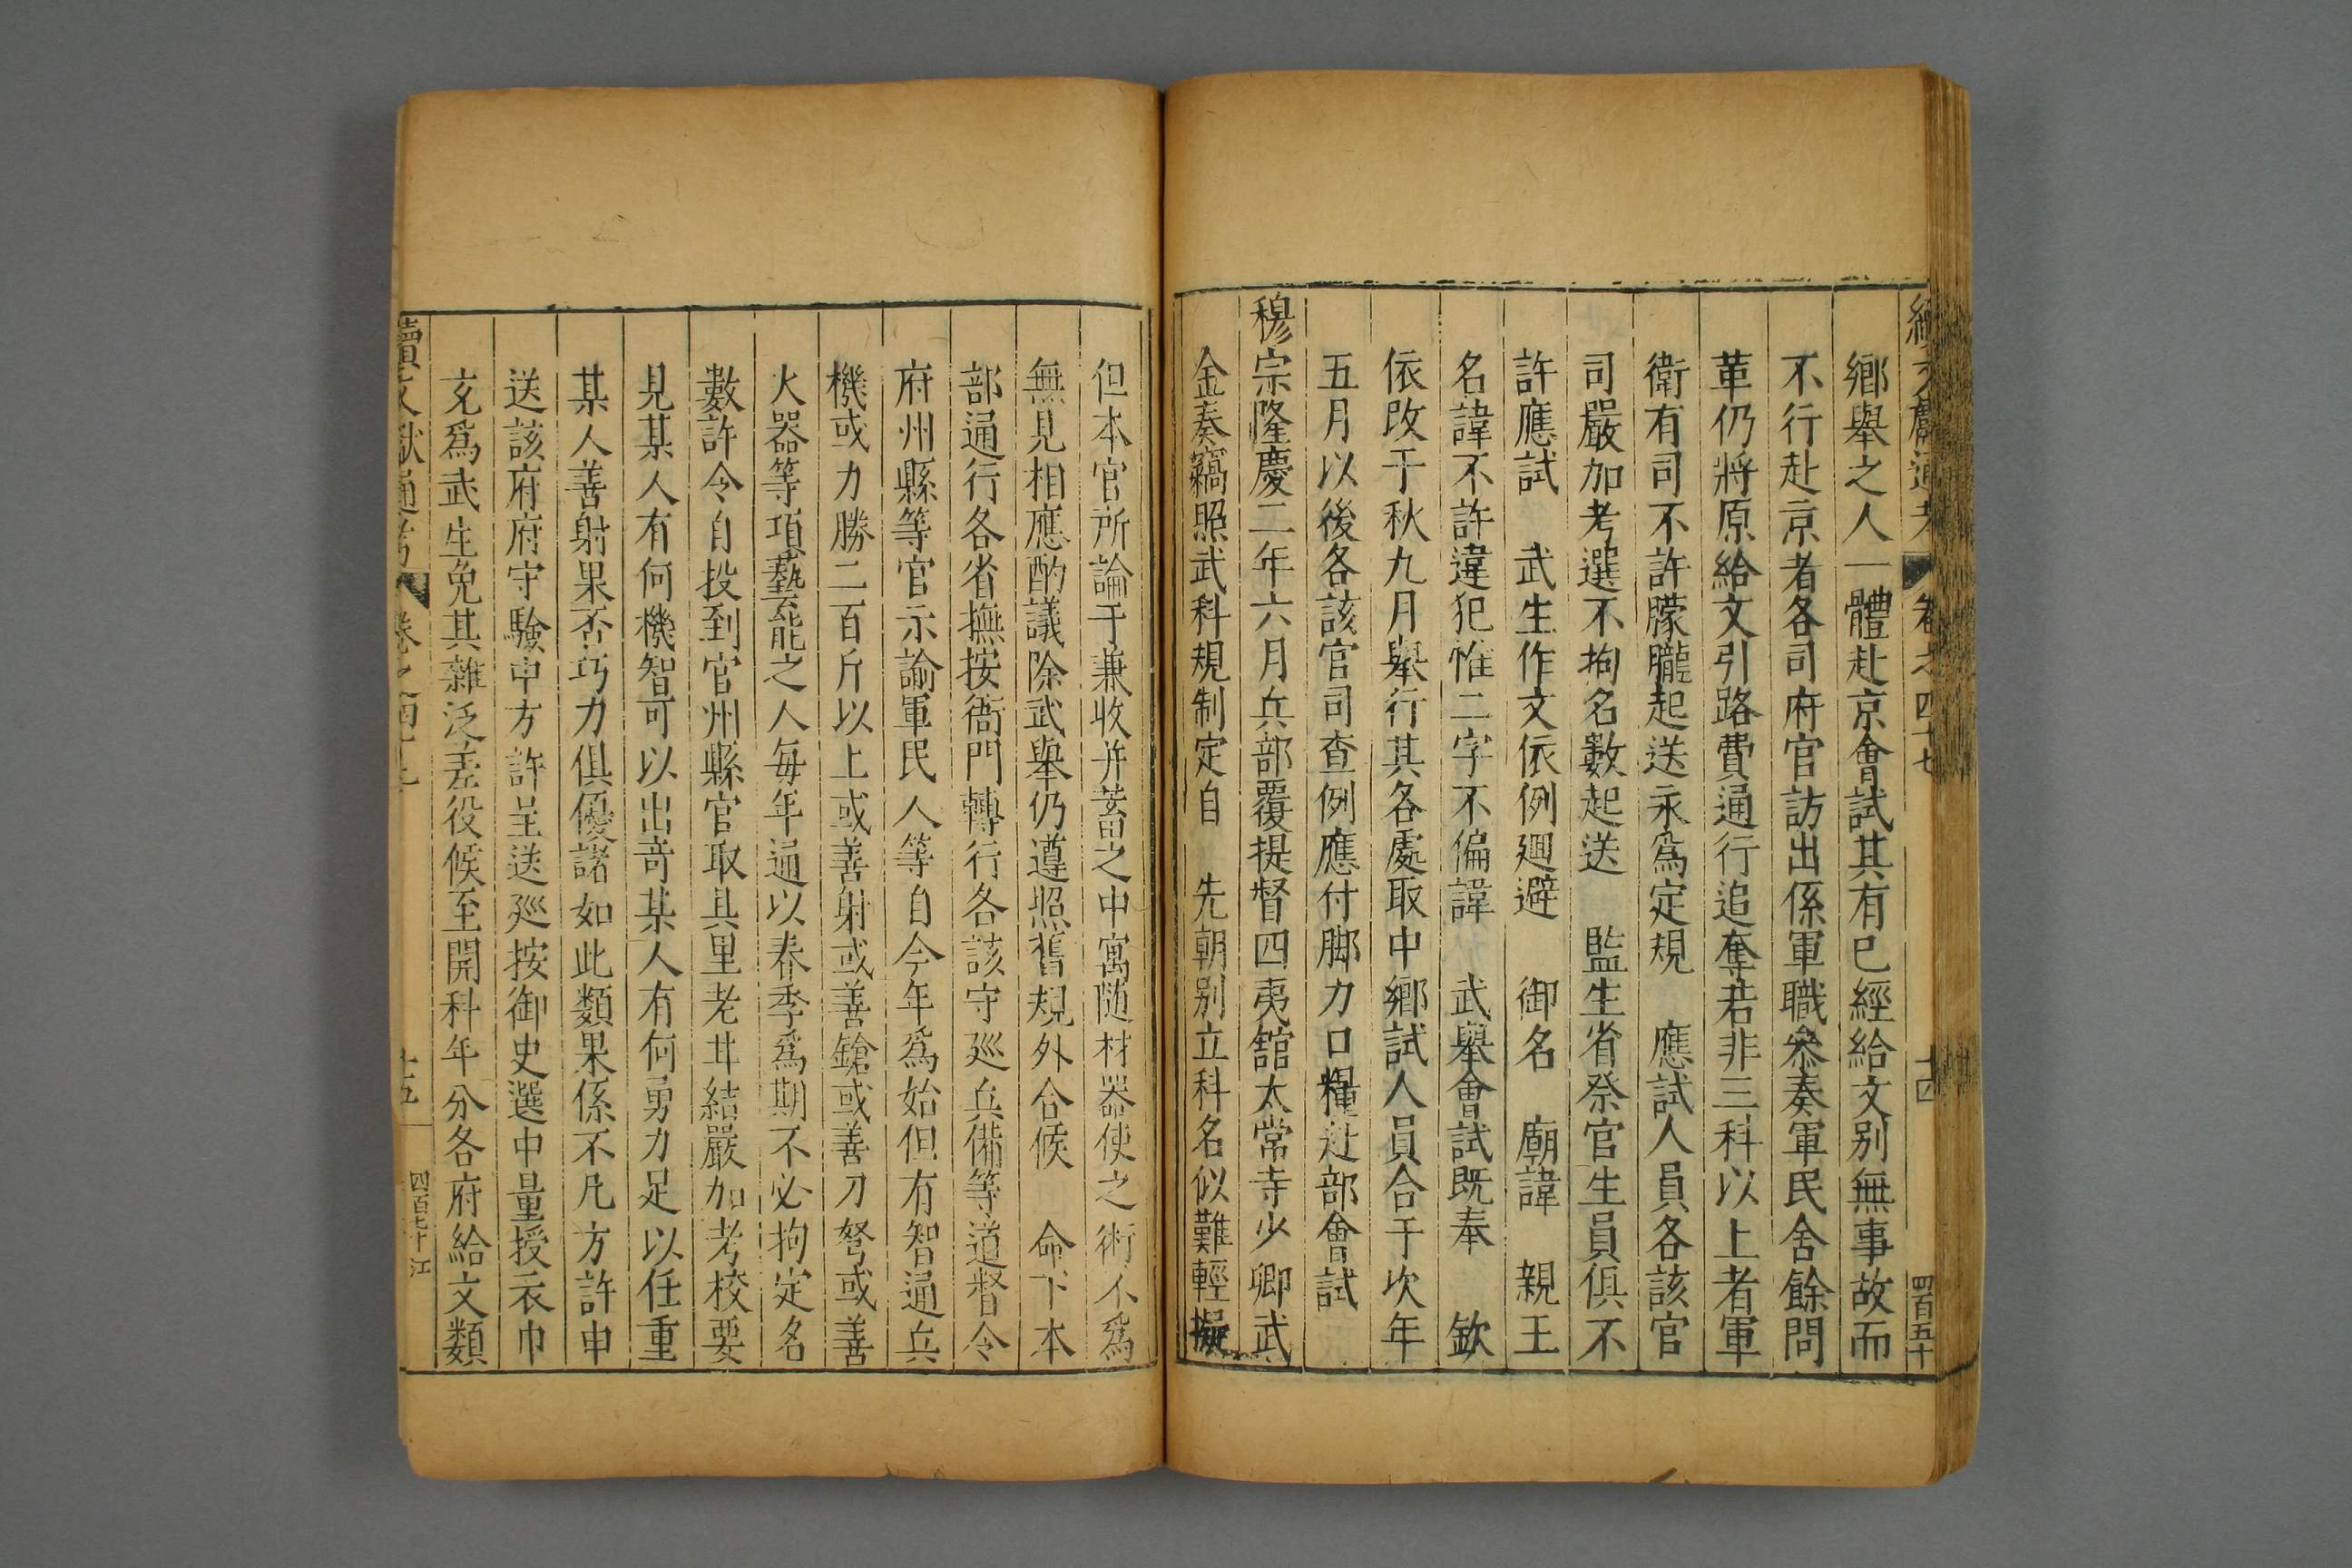 續文獻通考 卷之四十七 十四 四百五十
鄉舉之人一體赴京會試其有已經給文别無事故而
不行赴京者各司府官訪出係軍職叅奏軍民舍餘問
革仍將原給文引路費通行追奪若非三科以上者軍
衛有司不許朦朧起送永爲定規 應試人員各該官
司嚴加考選不拘名數起送 監生省祭官生員俱不
許應試 武生作文依例廻避 御名 廟諱 親王
名諱不許違犯惟二字不偏諱 武舉會試既奉 欽
依改于秋九月舉行其各處取中鄉試人員合于次年
五月以後各該官司查例應付脚力口糧赴部會試
穆宗隆慶二年六月兵部覆提督四夷館太常寺少卿武
金奏竊照武科規制定自 先朝别立科名似難輕擬
但本官所論于兼收并蓄之中寓随材器使之術不爲
無見相應酌議除武舉仍遵照舊規外合候 命下本
部通行各省撫按衙門轉行各該守廵兵備等道督令
府州縣等官示諭軍民人等自今年爲始但有智通兵
機或力勝二百斤以上或善射或善鎗或善刀弩或善
火器等項藝能之人每年通以春季爲期不必拘定名
數許令自投到官州縣官取具里老甘結嚴加考校要
見某人有何機智可以出奇某人有何勇力足以任重
某人善射果否巧力俱優諸如此類果係不凡方許申
送該府府守驗中方許呈送廵按御史選中量授衣巾
充爲武生免其雜泛差役候至開科年分各府給文類
續文獻通考 卷之四十七 十五 四百七十 江